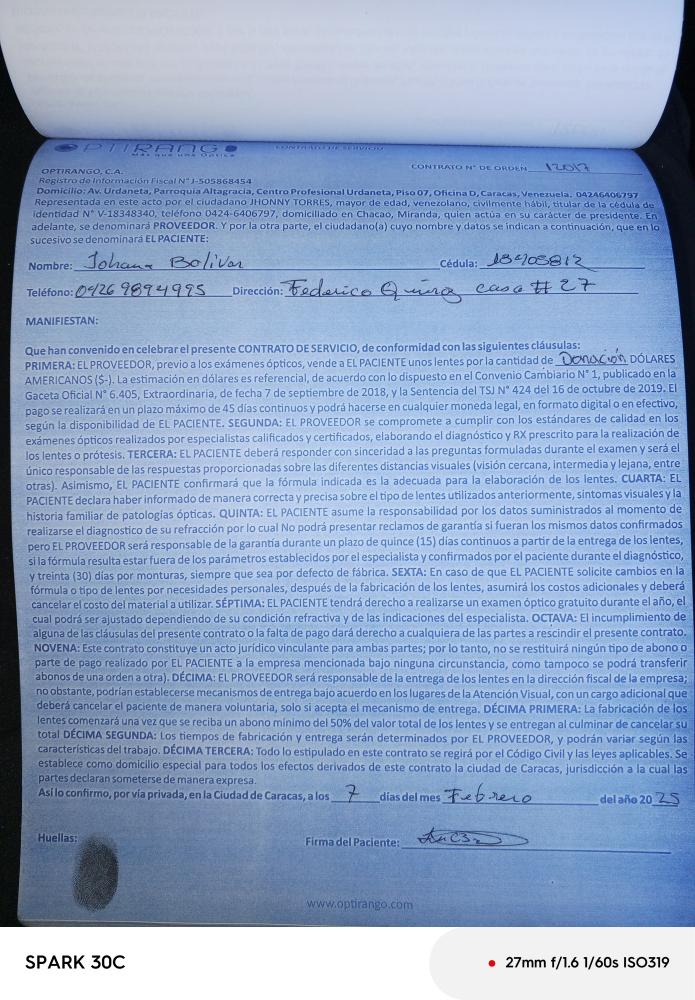 OPTIRANGO
Más que una Óptica
CONTRATO DE SERVICIO
CONTRATO N° DE ORDEN 12017
OPTIRANGO, C.A.
Registro de Información Fiscal N° J-505868454
Domicilio: Av. Urdaneta, Parroquia Altagracia, Centro Profesional Urdaneta, Piso 07, Oficina D, Caracas, Venezuela. 04246406797
Representada en este acto por el ciudadano JHONNY TORRES, mayor de edad, venezolano, civilmente hábil, titular de la cédula de
identidad N° V-18348340, teléfono 0424-6406797, domiciliado en Chacao, Miranda, quien actúa en su carácter de presidente. En
adelante, se denominará PROVEEDOR. Y por la otra parte, el ciudadano(a) cuyo nombre y datos se indican a continuación, que en lo
sucesivo se denominará EL PACIENTE:
Nombre: Johana Bolívar Cédula: 18405812
Teléfono: 04269894995 Dirección: Federico Quiroz casa # 27
MANIFIESTAN:
Que han convenido en celebrar el presente CONTRATO DE SERVICIO, de conformidad con las siguientes cláusulas:
PRIMERA: EL PROVEEDOR, previo a los exámenes ópticos, vende a EL PACIENTE unos lentes por la cantidad de Donación DÓLARES
AMERICANOS ($-). La estimación en dólares es referencial, de acuerdo con lo dispuesto en el Convenio Cambiario N° 1, publicado en la
Gaceta Oficial N° 6.405, Extraordinaria, de fecha 7 de septiembre de 2018, y la Sentencia del TSJ N° 424 del 16 de octubre de 2019. El
pago se realizará en un plazo máximo de 45 días continuos y podrá hacerse en cualquier moneda legal, en formato digital o en efectivo,
según la disponibilidad de EL PACIENTE. SEGUNDA: EL PROVEEDOR se compromete a cumplir con los estándares de calidad en los
exámenes ópticos realizados por especialistas calificados y certificados, elaborando el diagnóstico y RX prescrito para la realización de
los lentes o prótesis. TERCERA: EL PACIENTE deberá responder con sinceridad a las preguntas formuladas durante el examen y será el
único responsable de las respuestas proporcionadas sobre las diferentes distancias visuales (visión cercana, intermedia y lejana, entre
otras). Asimismo, EL PACIENTE confirmará que la fórmula indicada es la adecuada para la elaboración de los lentes. CUARTA: EL
PACIENTE declara haber informado de manera correcta y precisa sobre el tipo de lentes utilizados anteriormente, síntomas visuales y la
historia familiar de patologías ópticas. QUINTA: EL PACIENTE asume la responsabilidad por los datos suministrados al momento de
realizarse el diagnostico de su refracción por lo cual No podrá presentar reclamos de garantía si fueran los mismos datos confirmados
pero EL PROVEEDOR será responsable de la garantía durante un plazo de quince (15) días continuos a partir de la entrega de los lentes,
si la fórmula resulta estar fuera de los parámetros establecidos por el especialista y confirmados por el paciente durante el diagnóstico,
y treinta (30) días por monturas, siempre que sea por defecto de fábrica. SEXTA: En caso de que EL PACIENTE solicite cambios en la
fórmula o tipo de lentes por necesidades personales, después de la fabricación de los lentes, asumirá los costos adicionales y deberá
cancelar el costo del material a utilizar. SÉPTIMA: EL PACIENTE tendrá derecho a realizarse un examen óptico gratuito durante el año, el
cual podrá ser ajustado dependiendo de su condición refractiva y de las indicaciones del especialista. OCTAVA: El incumplimiento de
alguna de las cláusulas del presente contrato o la falta de pago dará derecho a cualquiera de las partes a rescindir el presente contrato.
NOVENA: Este contrato constituye un acto jurídico vinculante para ambas partes; por lo tanto, no se restituirá ningún tipo de abono o
parte de pago realizado por EL PACIENTE a la empresa mencionada bajo ninguna circunstancia, como tampoco se podrá transferir
abonos de una orden a otra). DÉCIMA: EL PROVEEDOR será responsable de la entrega de los lentes en la dirección fiscal de la empresa;
no obstante, podrían establecerse mecanismos de entrega bajo acuerdo en los lugares de la Atención Visual, con un cargo adicional que
deberá cancelar el paciente de manera voluntaria, solo si acepta el mecanismo de entrega. DÉCIMA PRIMERA: La fabricación de los
lentes comenzará una vez que se reciba un abono mínimo del 50% del valor total de los lentes y se entregan al culminar de cancelar su
total DÉCIMA SEGUNDA: Los tiempos de fabricación y entrega serán determinados por EL PROVEEDOR, y podrán variar según las
características del trabajo. DÉCIMA TERCERA: Todo lo estipulado en este contrato se regirá por el Código Civil y las leyes aplicables. Se
establece como domicilio especial para todos los efectos derivados de este contrato la ciudad de Caracas, jurisdicción a la cual las
partes declaran someterse de manera expresa.
Así lo confirmo, por vía privada, en la Ciudad de Caracas, a los 7 días del mes Febrero del año 20 25
Huellas:
Firma del Paciente:
www.optirango.com
SPARK 30C
27mm f/1.6 1/60s ISO319